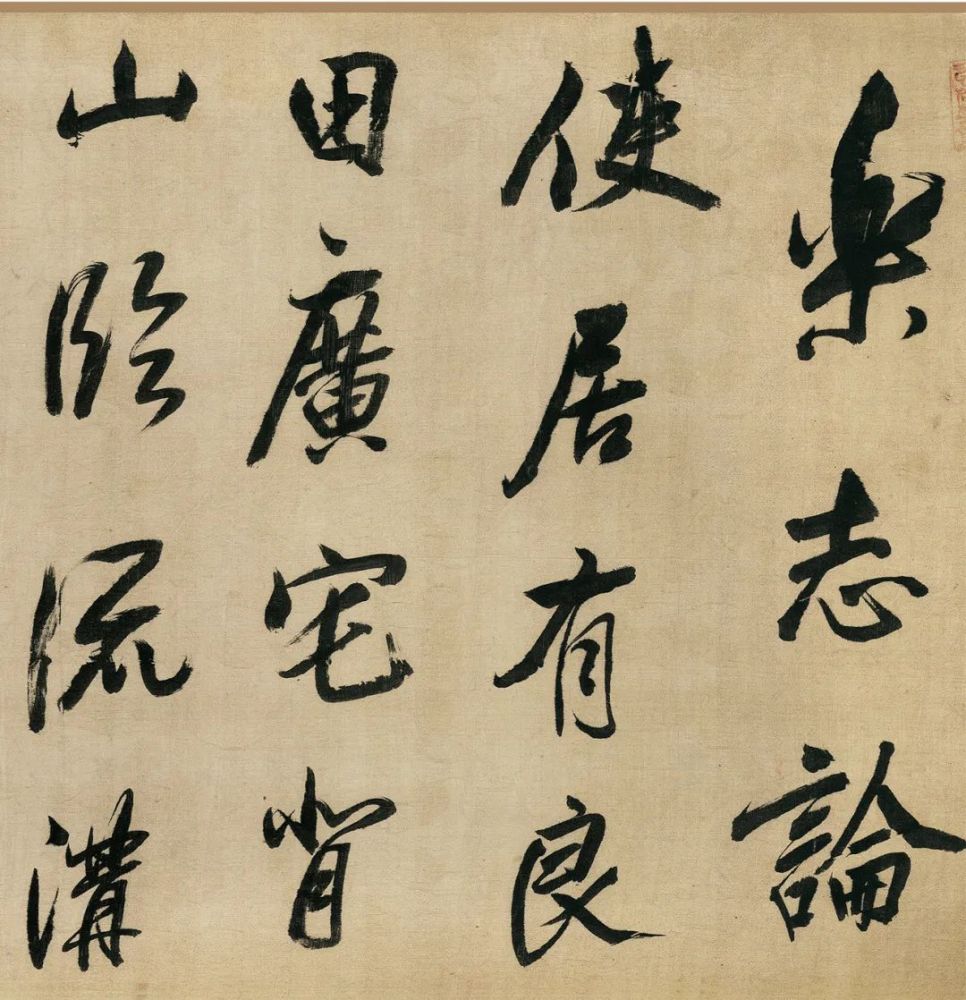 樂志論
使居有良
田廣宅背
山臨流溝